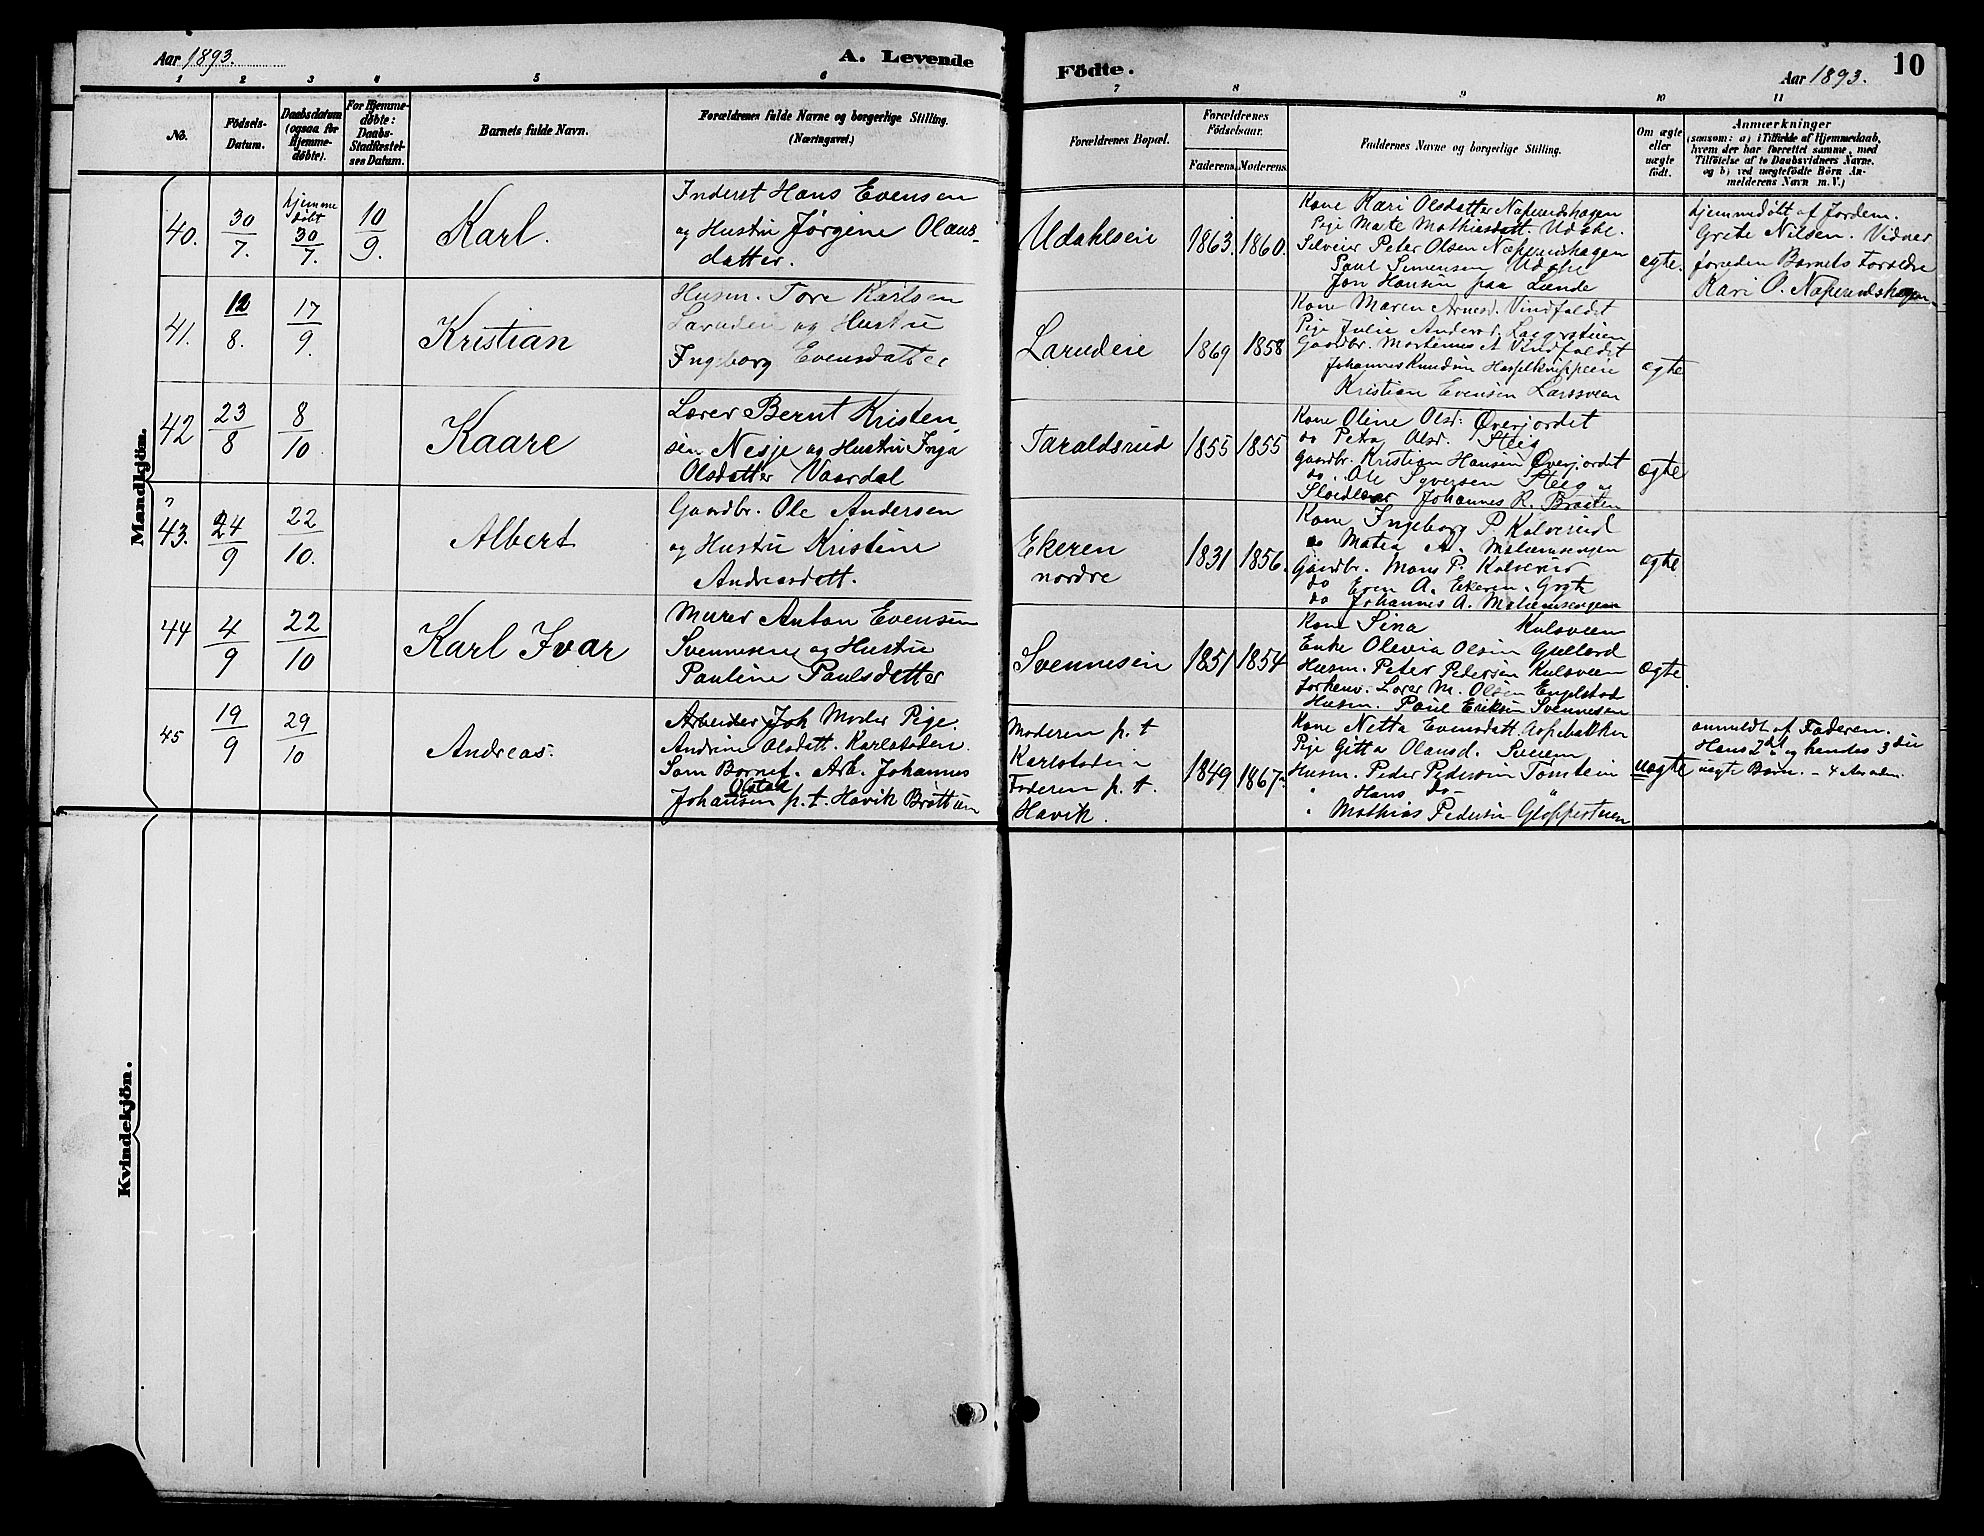 Aar 1893.
A. Levende
Födte.
Aar 1893.
10
1 2 3 4 5 6 7 8 9 10 11
No.
Födsels-
Datum.
Daabsdatum
(ogsaa for
Hjemme-
døbte).
For Hjemme-
døbte:
Daabs-
Stadfæstel-
ses Datum.
Barnets fulde Navn.
Forældrenes fulde Navne og borgerlige Stilling.
(Næringsvei.)
Forældrenes Bopæl.
Forældrenes
Födselsaar.
Faderens.
Moderens.
Faddernes Navne og borgerlige Stilling.
Om ægte
eller
uægte
født.
Anmærkninger
(saasom: a) i Tilfælde af Hjemmedaab,
hvem der har forrettet samme, med
Tilföielse af to Daabsvidners Navne.
og b) ved uægtefödte Börn An-
melderens Navn m. V.)
Mandkjön.
40.
30/7.
hjemme
døbt
30/7.
10/9.
Karl.
Inderst Hans Evensen
og Hustru Jørgine Olaus-
datter.
Udahlseie
1863.
1860.
Kone Kari Olsdatter Næperudshagen
Pige Mate Mathiasdatt. Udahl.
Peter Olsen Næperudshagen
Paul Simensen Udahl
Jon Hansen paa Lunde
ægte.
hjemmedøbt af Jordem.
Grete Nilsen. Vidner
foruden Barnets Forældre
Kari O. Næperudshagen.
41.
12/8.
17/9.
Kristian
Husm. Tore Karlsen
Larudeie og Hustru
Ingeborg Evensdatter
Larudeie
1869
1858
Kone Maren Arnesd. Vindfaldet
Pige Julie Andersd.
Gaardbr. Martenius A Vindfaldet
Johannes Knudsen
Kristian Evensen Larssveen
ægte
42
23/8
8/10
Kaare
Lærer Bernt Kristen-
sen Nesje og Hustru Inga
Olsdatter Vaardal
Taraldsrud
1855
1855
Kone Oline Olsd. Øverjordet
do Petra Olsd. Steig
Gaardbr. Kristian Hansen Øverjordet
do. Ole Syversen Steig og
Sløidlærer Johannes R. Braaten
ægte
"
43.
24/9
22/10.
Albert
Gaardbr. Ole Andersen
og Hustru Kristine
Andreasdatt.
Ekeren
nordre
1831
1856.
Kone Ingeborg P Kalverud
do Matea A.
Gaardbr. Mons P. Kalverud
do Even A. Ekeren
do Johannes A.
ægte
44
4/9
22/10
Karl Ivar
Murer Anton Evensen
Svenneseie og Hustru
Pauline Paulsdatter
Svenneseie
1851
1854
Kone Sina Kulsveen
Enke Olevia Olsen Gullord
Husm. Peter Pedersen Kulsveen
Forhenv. Lærer M. Olsen Engelstad
Husm. Paul Eriksen Svennesen
ægte
45
19/9
29/10
Andreas.
Arbeider Joh Moder Pige
Andrine Olsdatt. Karlstadeie.
Som Barnef. Arb. Johannes
Olstad
Johansen p. t. Havik Brøttum
Moderen p. t
Karlstadeie
Faderen p. t.
Havik.
1849
1867.
Kone Netta Evensdatt Aspebakken
Pige Gitta Olausd.
Husm. Peder Pedersen Tomstein
" Hans do "
" Mathias Pedersen
uægte
anmeldt af Faderen.
Hans 2det og hendes 3die
uægte Barn. - 4 Aar siden.
Kvindekjön.